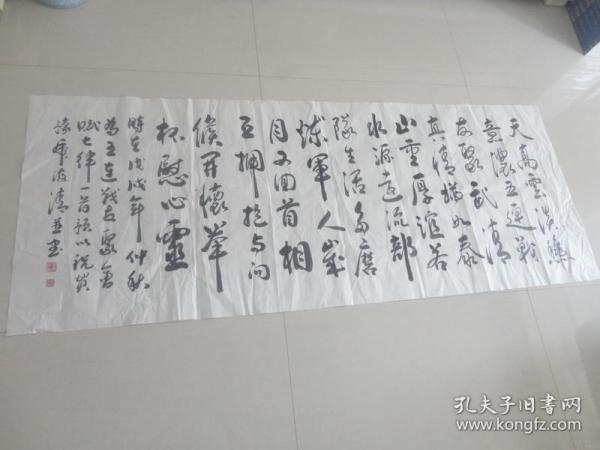 天高雲淡雁
意濃五連戰
友聚武清
真情猶如泰
山重厚誼若
水源遠流部
隊生活多磨
煉軍人歲
月又回首相
互擁抱与问
候开懷举
杯慰心靈
時在戊戌年仲秋
为五連戰友聚會
賦七律一首以祝贺
清並書
孔夫子旧书网
www.kongfz.com